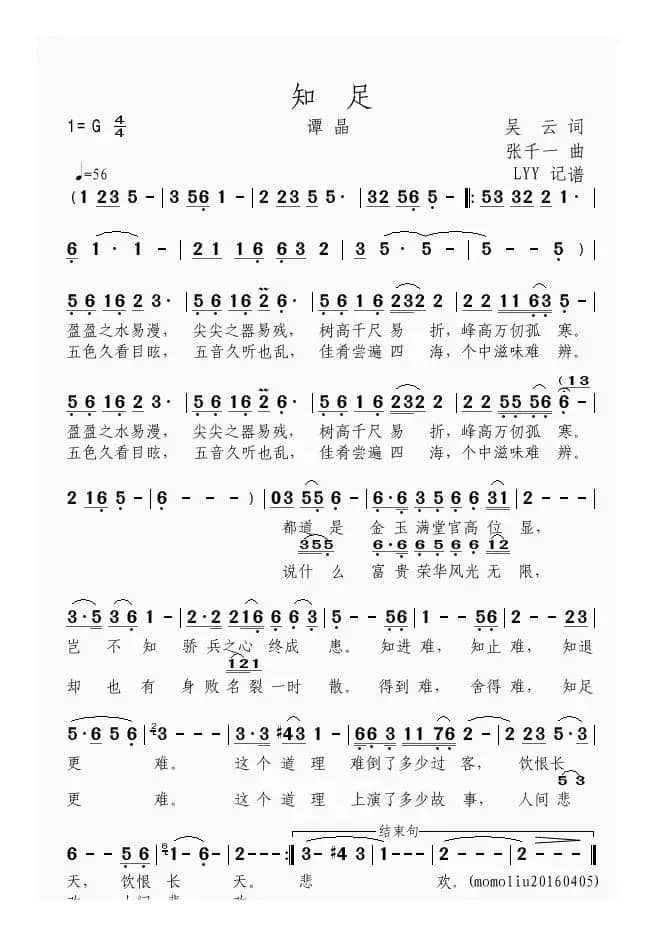 知 足
1= G 4/4 谭 晶 吴 云 词
张千一 曲
♩=56 LYY 记谱
( 1 23 5 - | 3 56 1 - | 2 23 5 5 · | 32 56 5 - |: 53 32 2 1 · |
6 1 · 1 - | 2 1 1 6 6 3 2 | 3 5 · 5 - | 5 - - 5 ) |
5 6 16 2 3· | 5 6 16 2 6· | 5 6 1 6 232 2 | 2 2 11 63 5 - |
盈盈之水易漫， 尖尖之器易残， 树高千尺 易 折，峰高万仞孤 寒。
五色久看目眩， 五音久听也乱， 佳肴尝遍 四 海，个中滋味难 辨。
(13
5 6 16 2 3· | 5 6 16 2 6· | 5 6 1 6 232 2 | 2 2 55 56 6 - |
盈盈之水易漫， 尖尖之器易残， 树高千尺 易 折，峰高万仞孤 寒。
五色久看目眩， 五音久听也乱， 佳肴尝遍 四 海，个中滋味难 辨。
2 16 5 - | 6 - - - ) | 03 55 6 - | 6·6 3 5 6 6 31 | 2 - - - |
都道 是 金 玉 满堂官高 位 显，
355 6·6 6 5 6 6 12
说什 么 富 贵 荣华风光 无 限，
3·5 3 6 1 - | 2·2 216 6 6 3 | 5 - - 56 | 1 - - 56 | 2 - - 23 |
岂 不 知 骄 兵之心 终成 患。 知进 难， 知止 难， 知退
121
却 也 有 身 败 名 裂 一时 散。 得到 难， 舍得 难， 知足
5·6 5 6 | 2 3 - - | 3·3 #43 1 - | 66 3 11 76 | 2 - 2 23 | 5·3
更 难。 这 个 道 理 难倒了多少过 客， 饮恨长
5 3
更 难。 这 个 道 理 上演了多少故 事， 人间 悲
结束句
6 - - 5 6 | 6 1 - 6 - | 2--- :| 3- #4 3 | 1--- | 2 - - - | 2 - - - ‖
天， 饮恨 长 天。 悲 欢。(momoliu20160405)